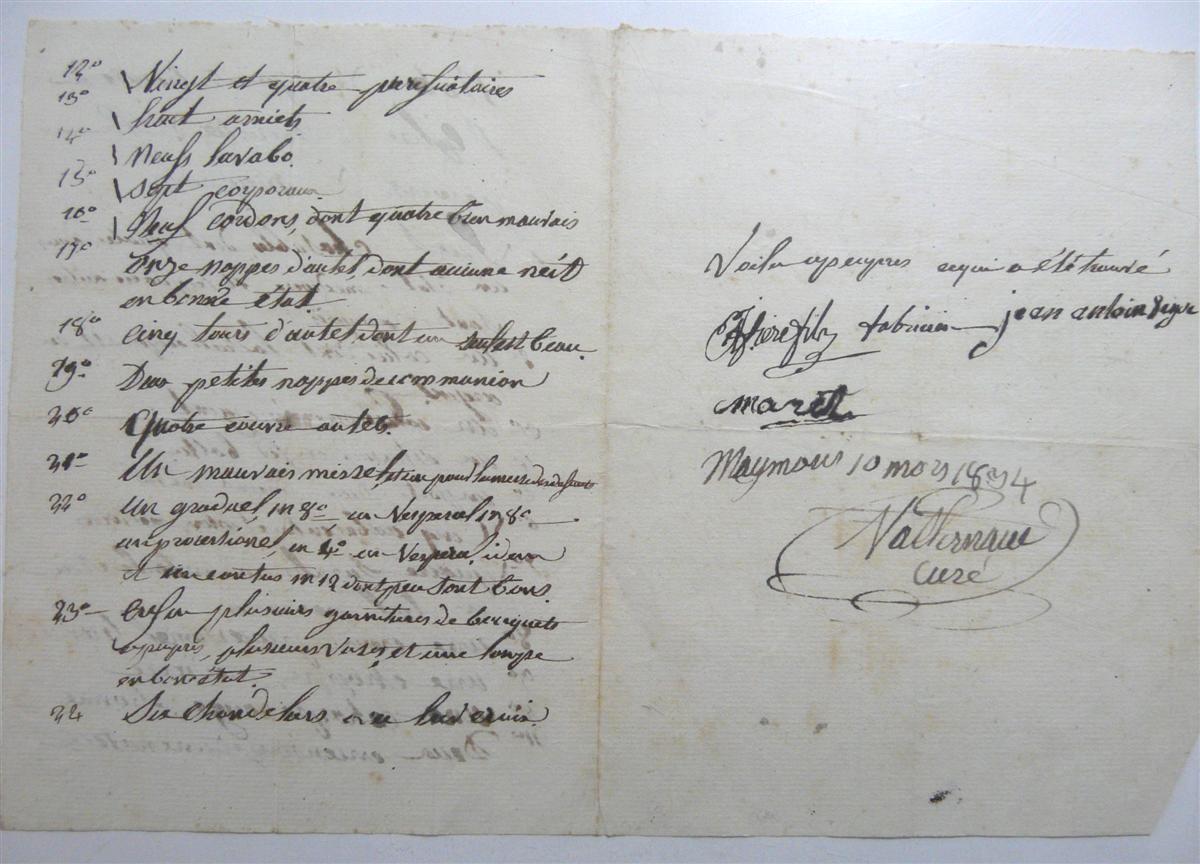 12° Vingt et quatre purificatoires
13° huit amicts
14° Neufs lavabo.
15° Sept corporaux
16° Neuf cordons, dont quatre bien mauvais
17° onze nappes d'autel dont aucune n'est
en bonne état.
18° cinq tours d'autel dont un seul est beau.
19° Deux petites nappes de communion
20° Quatre couvre autels.
21° Un mauvais missel, un pour la messe des défunts
22° un graduel in 8° un Vesperal in 8°
un processionel, in 4° un Vesperal, idem
et un cantus in 12 dont peu sont bons.
23° enfin plusieurs garnitures de bouquets
plusieurs vases, et une lampe
en bon état.
24 Six chandeliers avec leur croix.
Voila apeupres cequi a été trouvé
fabricien jean antoin
maret
Maymous 10 mars 1834
curé